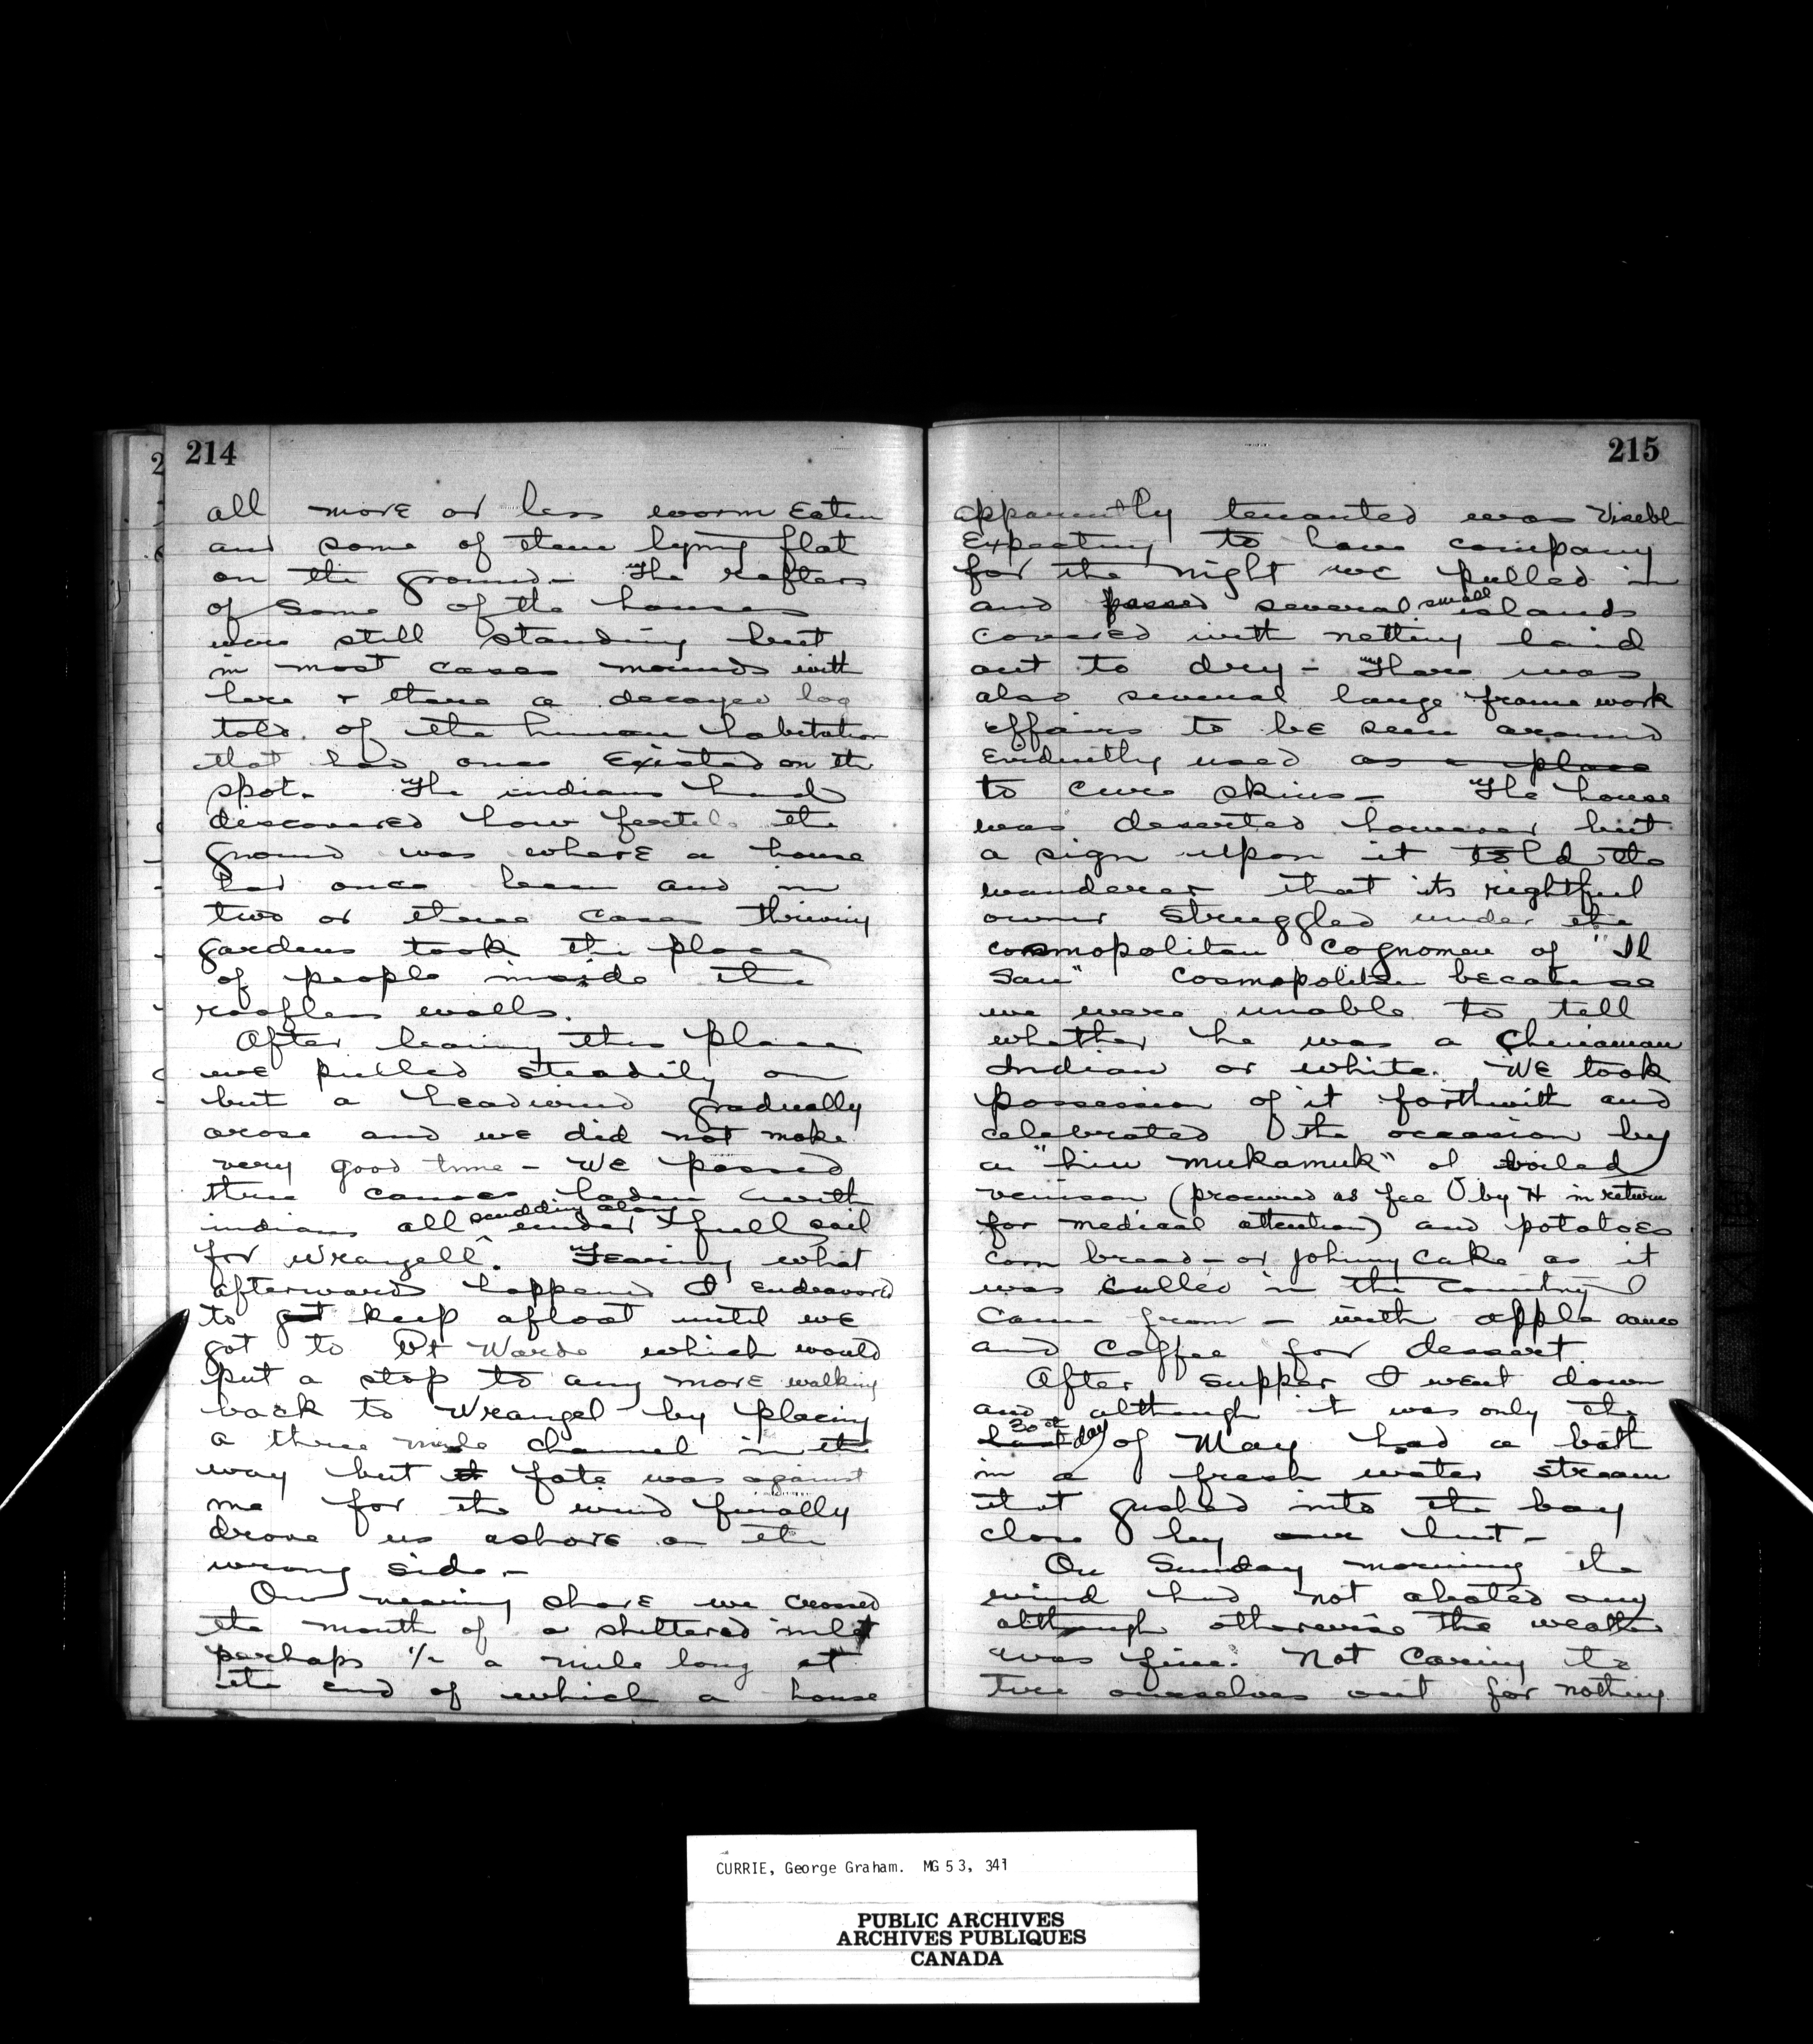 214
all more or less worm Eaten
and some of them lying flat
on the ground - The rafters
of some of the houses
were still standing but
in most cases mounds with
here & there a decayed log
told of the human habitation
that had once Existed on the
spot. The indians had
discovered how fertile the
ground was where a house
had once been and in
two or three cases thriving
gardens took the place
of people inside the
roofless walls.
After leaving this place
we pulled steadily on
but a headwind gradually
arose and we did not make
very good time - We passed
three canoes laden with
indians all scudding along under full sail
for Wrangell. Fearing what
afterwards happened I endeavored
to get keep afloat until we
got to Pt Wards which would
put a stop to any more walking
back to Wrangel by placing
a three mile channel in the
way but it fate was against
me for the wind finally
drove us ashore on the
wrong side. -
On nearing shore we crossed
the mouth of a sheltered inlet
perhaps 1/2 a mile long at
the end of which a house
215
apparently tenanted was visible
Expecting to have company
for the night we pulled in
and passed several small islands
covered with netting laid
out to dry - There was
also several large frame work
affairs to be seen around
Evidently used as a place
to cure skins - The house
was deserted however but
a sign upon it told the
wanderer that its rightful
owner struggled under the
cosmopolitan cognomen of "Il
San" Cosmopolitan because
we were unable to tell
whether he was a Chinaman
Indian or white. We took
possession of it forthwith and
celebrated the occasion by
a "hiu mukamuk" of boiled
venison (procured as fee by H in return
for medical attention) and potatoes
corn bread - or Johnny cake as it
was called in the country I
came from - with apple sauce
and coffee for dessert.
After supper I went down
and although it was only the
last 30th day of May had a bath
in a fresh water stream
that gushed into the bay
close by our hut -
On Sunday morning the
wind had not abated any
although otherwise the weather
was fine. Not Caring to
tire ourselves out for nothing
CURRIE, George Graham. MG 53, 341
PUBLIC ARCHIVES
ARCHIVES PUBLIQUES
CANADA